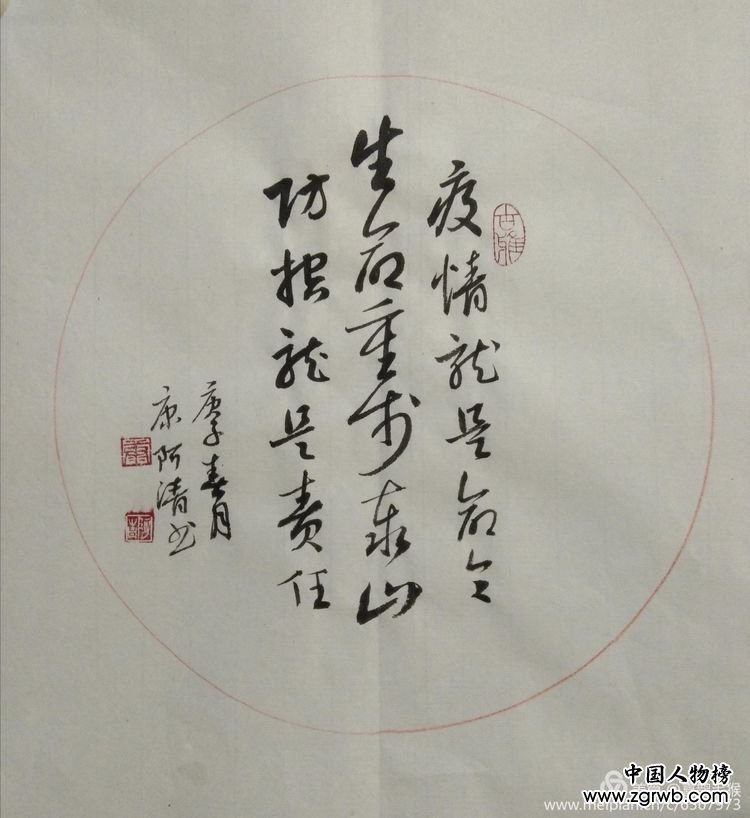 疫情就是命令
生命重於泰山
防控就是责任
庚子春月
康阿清书
中国人物榜
www.zgrwb.com